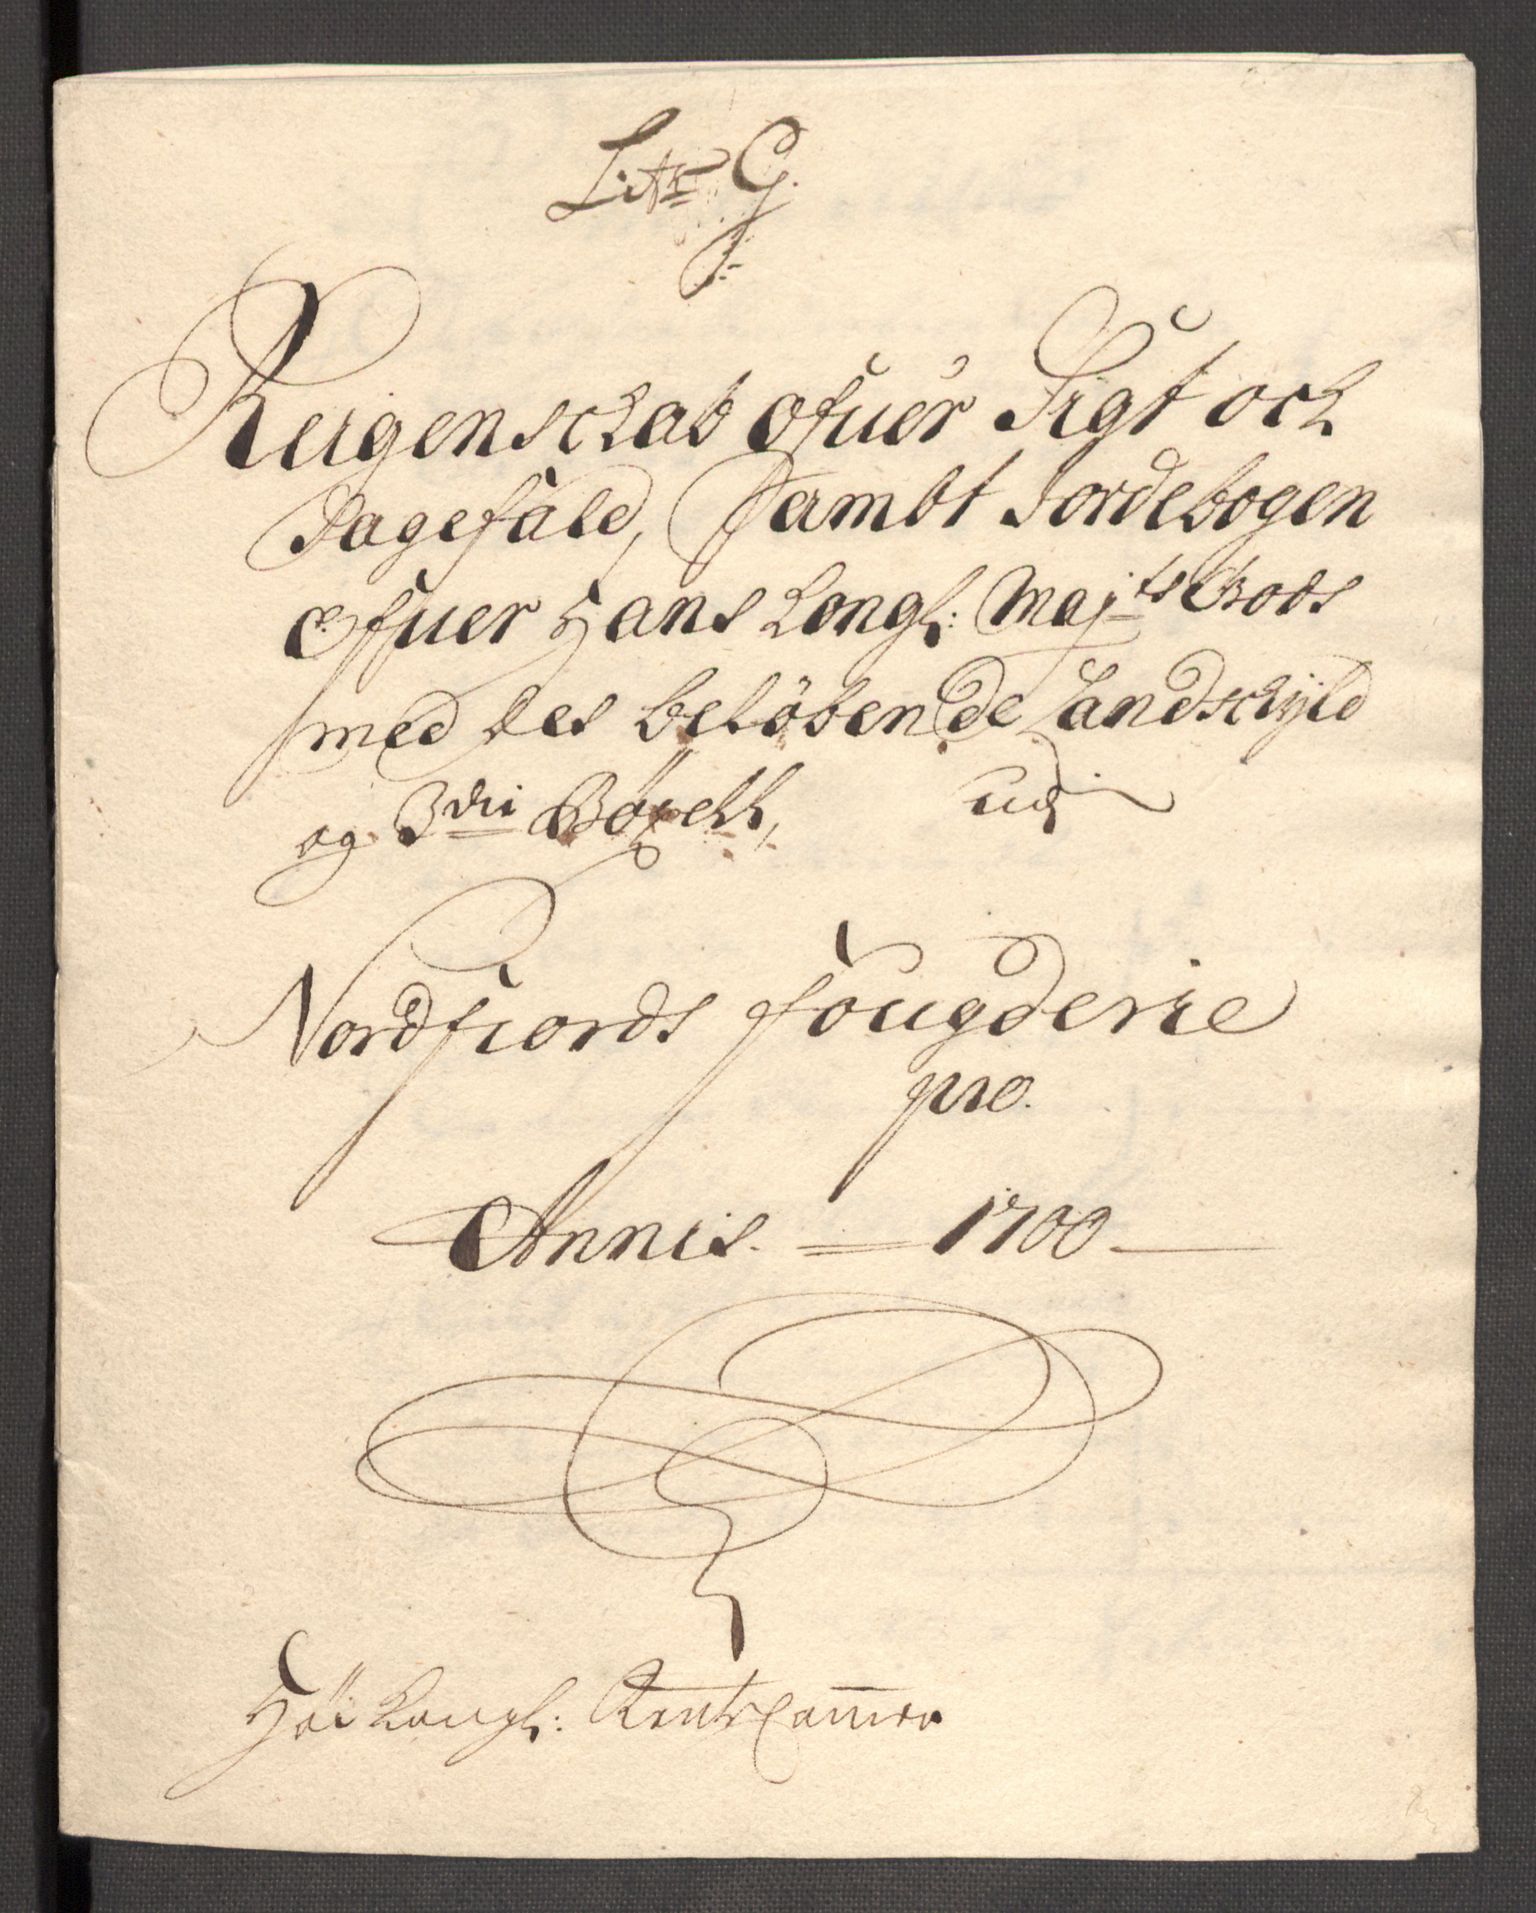 Litr G.
Reigenschab ofuer Sigt och
Sagefald, Sambt Jordebogen
ofuer Hans Kongl: Majts Gods
med des beløbende Landschyld
og 3die Bøxell, udj
Nordfiords fougderie
pro.
Annis. 1700
Höi Kongl: RentCammer